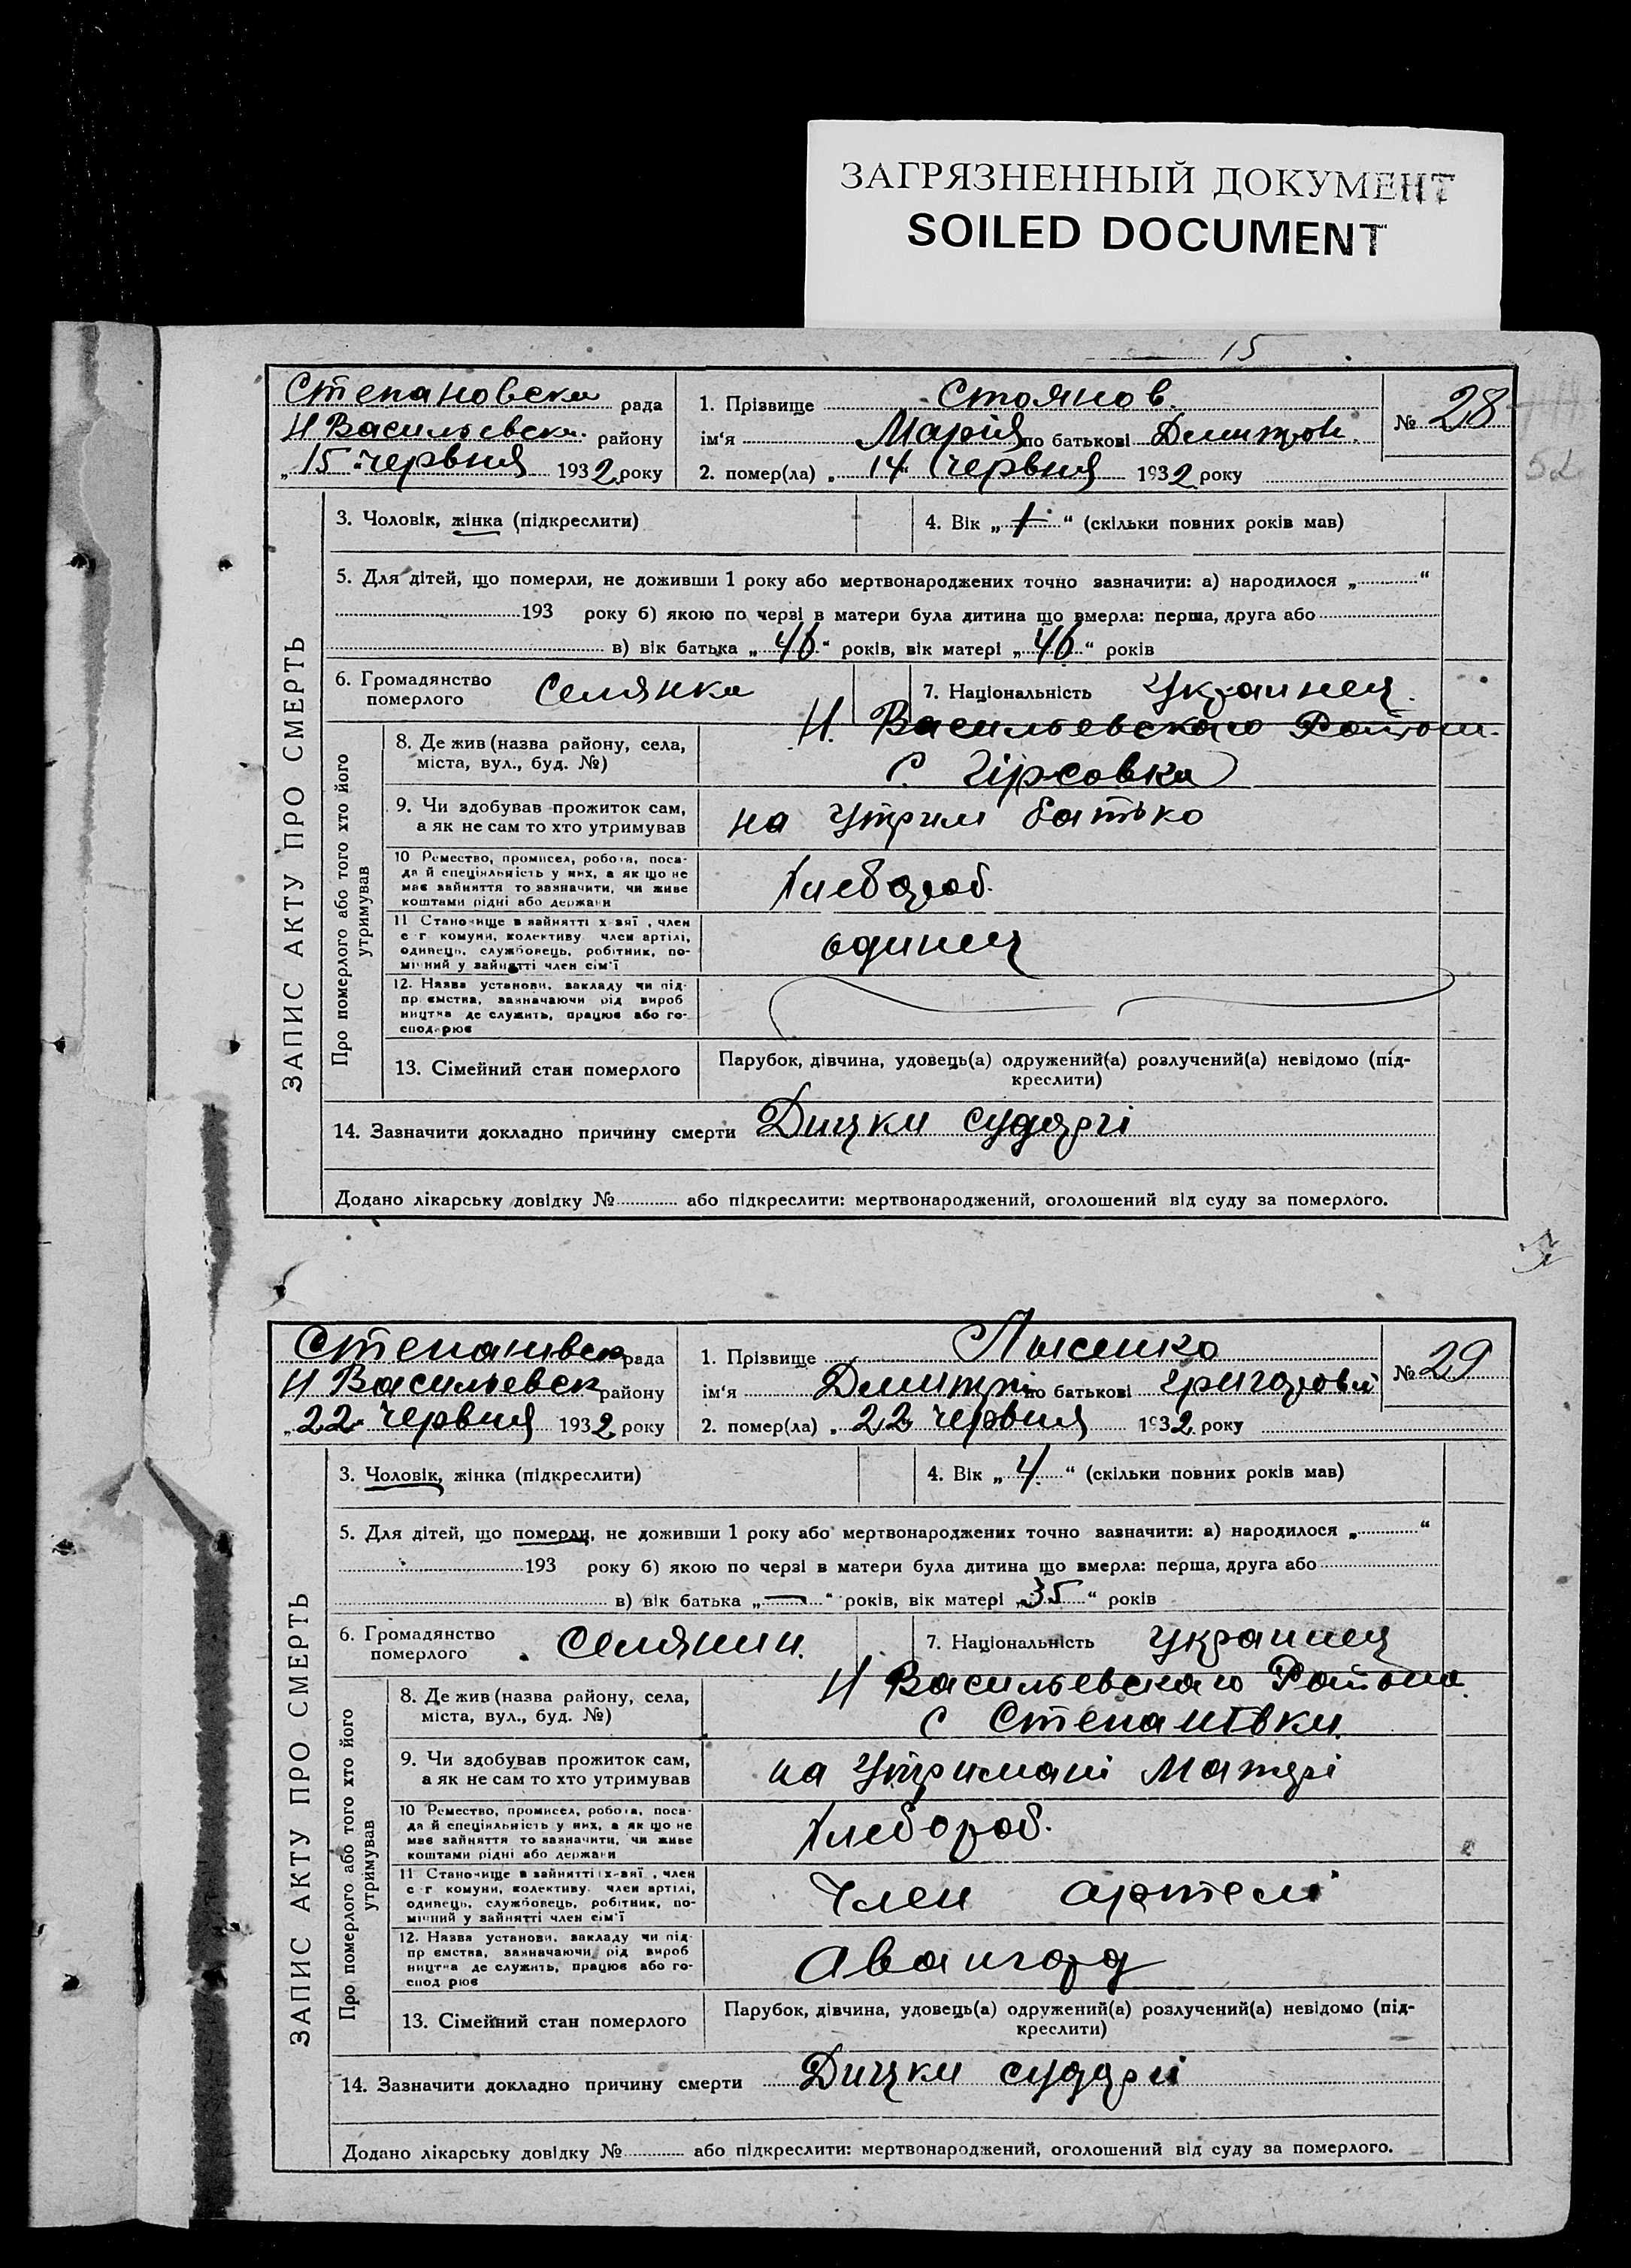 ЗАГРЯЗНЕННЫЙ ДОКУМЕНТ
SOILED DOCUMENT
15
Степановска рада
Н Васильевск. району
„15" червня 1932 року
1. Прізвище Стоянов
ім‘я Марія по батькові Дмитров.
2. помер(ла) „14" червня 1932 року
№ 28
52
ЗАПИС АКТУ ПРО СМЕРТЬ
3. Чоловік, жінка (підкреслити)
4. Вік „1“ (скільки повних років мав)
5. Для дітей, що померли, не доживши 1 року або мертвонароджених точно зазначити: а) народилося „ “
193 року б) якою по черзі в матери була дитина що вмерла: перша, друга або
в) вік батька „ “ років, вік матері „ “ років
6. Громадянство померлого Селянка
7. Національність Украинец
Про померлого або того хто його утримував
8. Де жив (назва району, села, міста, вул., буд. №)
Н. Васильевского Район.
С. Гірсовка
9. Чи здобував прожиток сам, а як не сам то хто утримував
на Утрим батько
10 Ремество, промисел, робота, посада й спеціяльність у них, а як що не має зайняття то зазначити, чи живе коштами рідні або держави
Хлебороб.
11 Становище в зайнятті х-вяї, член с г комуни, колективу член артілі, одинець, службовець, робітник, помічний у зайнятті член сім‘ї
одинец
12. Назва установи, закладу чи підпр ємства, зазначаючи рід виробництва де служить, працює або господарює
13. Сімейний стан померлого
Парубок, дівчина, удовець(а) одружений(а) розлучений(а) невідомо (підкреслити)
14. Зазначити докладно причину смерти Дицки судоргі
Додано лікарську довідку № або підкреслити: мертвонароджений, оголошений від суду за померлого.
Степанивска рада
Н Васильевск району
„22" червня 1932 року
1. Прізвище Лысенко
ім‘я Дмитри по батькові Григоров
2. помер(ла) „22 червня 1932 року
№ 29
ЗАПИС АКТУ ПРО СМЕРТЬ
3. Чоловік, жінка (підкреслити)
4. Вік „4“ (скільки повних років мав)
5. Для дітей, що померли, не доживши 1 року або мертвонароджених точно зазначити: а) народилося „ “
193 року б) якою по черзі в матери була дитина що вмерла: перша, друга або
в) вік батька „—“ років, вік матері „35“ років
6. Громадянство померлого Селянин.
7. Національність Украинец
Про померлого або того хто його утримував
8. Де жив (назва району, села, міста, вул., буд. №)
Н Васильевского Района
с Степанівки
9. Чи здобував прожиток сам, а як не сам то хто утримував
на Утримані Матері
10 Ремество, промисел, робота, посада й спеціяльність у них, а як що не має зайняття то зазначити, чи живе коштами рідні або держави
Хлебороб.
11 Становище в зайнятті х-вяї, член с г комуни, колективу член артілі, одинець, службовець, робітник, помічний у зайнятті член сім‘ї
Член артелі
12. Назва установи, закладу чи підпр ємства, зазначаючи рід виробництва де служить, працює або господ рює
Авангард
13. Сімейний стан померлого
Парубок, дівчина, удовець(а) одружений(а) розлучений(а) невідомо (підкреслити)
14. Зазначити докладно причину смерти Дицки судоргі
Додано лікарську довідку № або підкреслити: мертвонароджений, оголошений від суду за померлого.